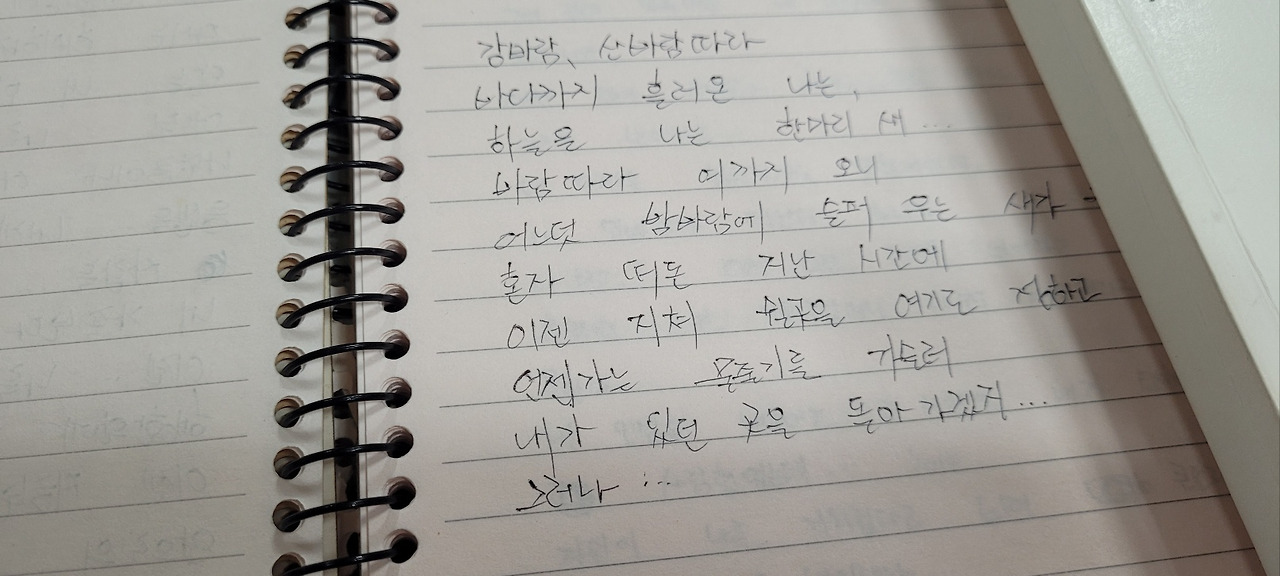 강바람, 산바람 따라
바다까지 흘러온 나는,
하늘을 나는 한마리 새...
바람따라 여까지 오니
어느덧 밤바람에 슬퍼 우는 새가
혼자 떠돈 지난 시간에
이젠 지쳐 쉴곳을 여기로 정하고
언젠가는 물줄기를 거슬러
내가 있던 곳을 돌아가겠지...
그러나...